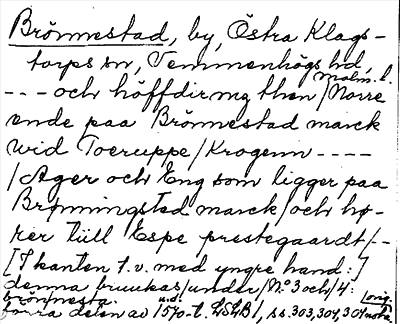 Brönnestad, by, Östra Klags-
torps sn, Vemmenhögs hd,
Malm. l.
--- och höffdirmg then / Norre
ende paa Brönnestad marck
wid Toeruppe / Krogenn ----
/ Ager och Eng som ligger paa
Brønningsted marck / och hø-
rer tüll Espe prestegaardt /--
[I kanten t.v. med yngre hand:]
denna bruukas / under / No 3 och / 4:
brönnesta.
förra delen av 1570-t. LLB 1, ss. 303, 304, 304
orig.
nota